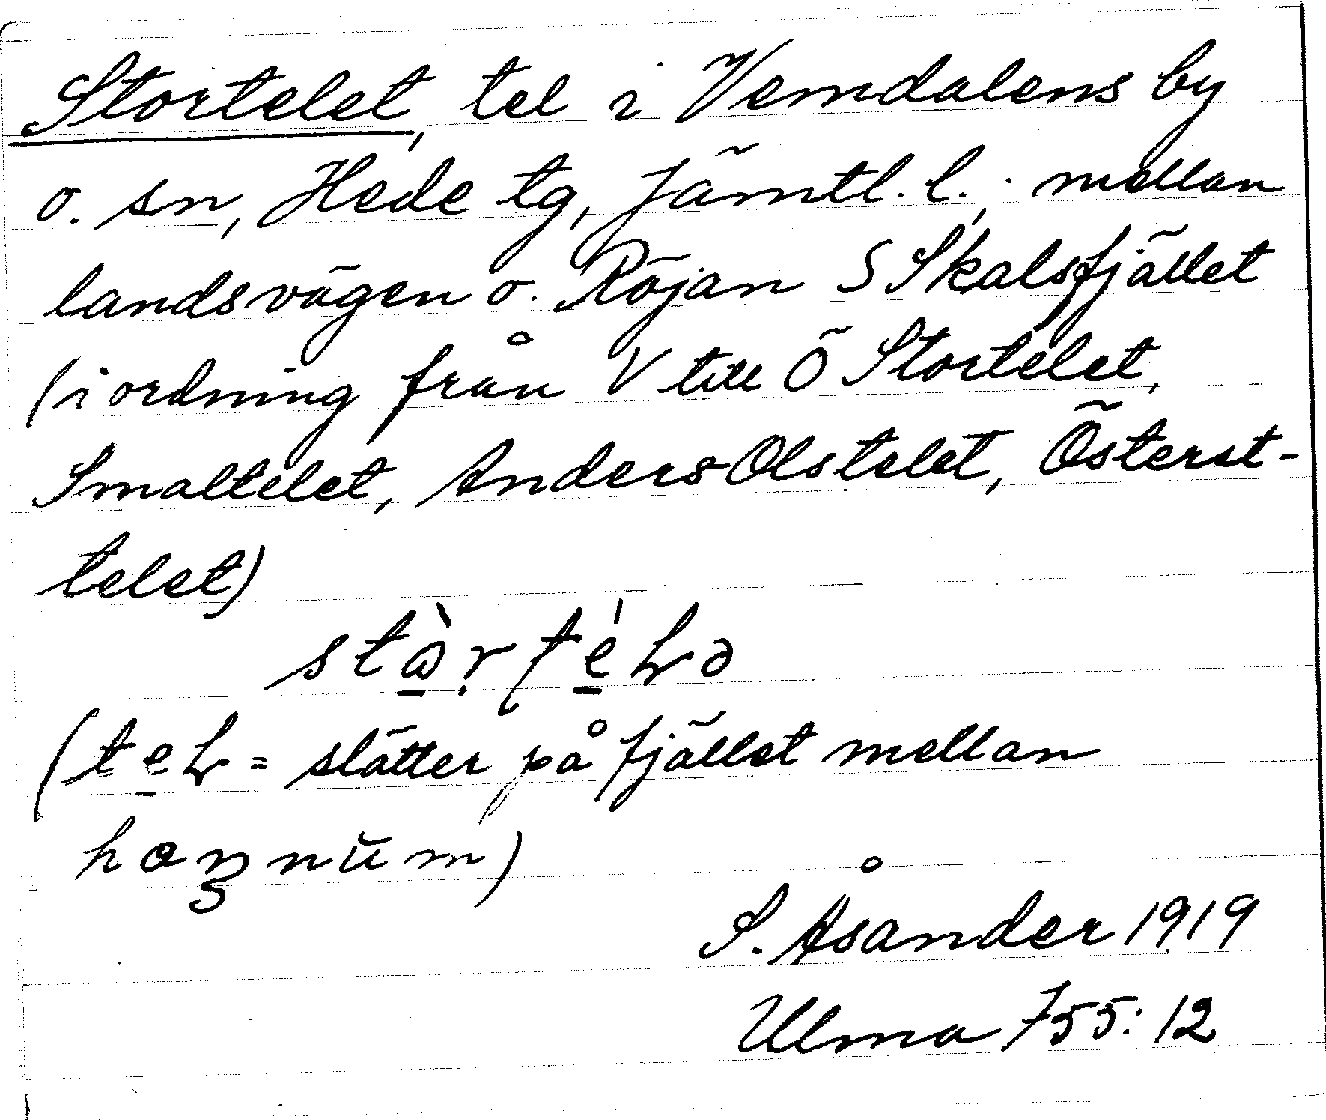 Stortelet, tel i Vemdalens by
o. sn, Hede tg, Jämtl. l., mellan
landsvägen o. Röjan S Skalsfjället
(i ordning från V till Ö Stortelet,
Smaltelet, Anders Olstelet, Österst-
telet)
(= slätter på fjället mellan
S. Åsander 1919
Ulma 755:12